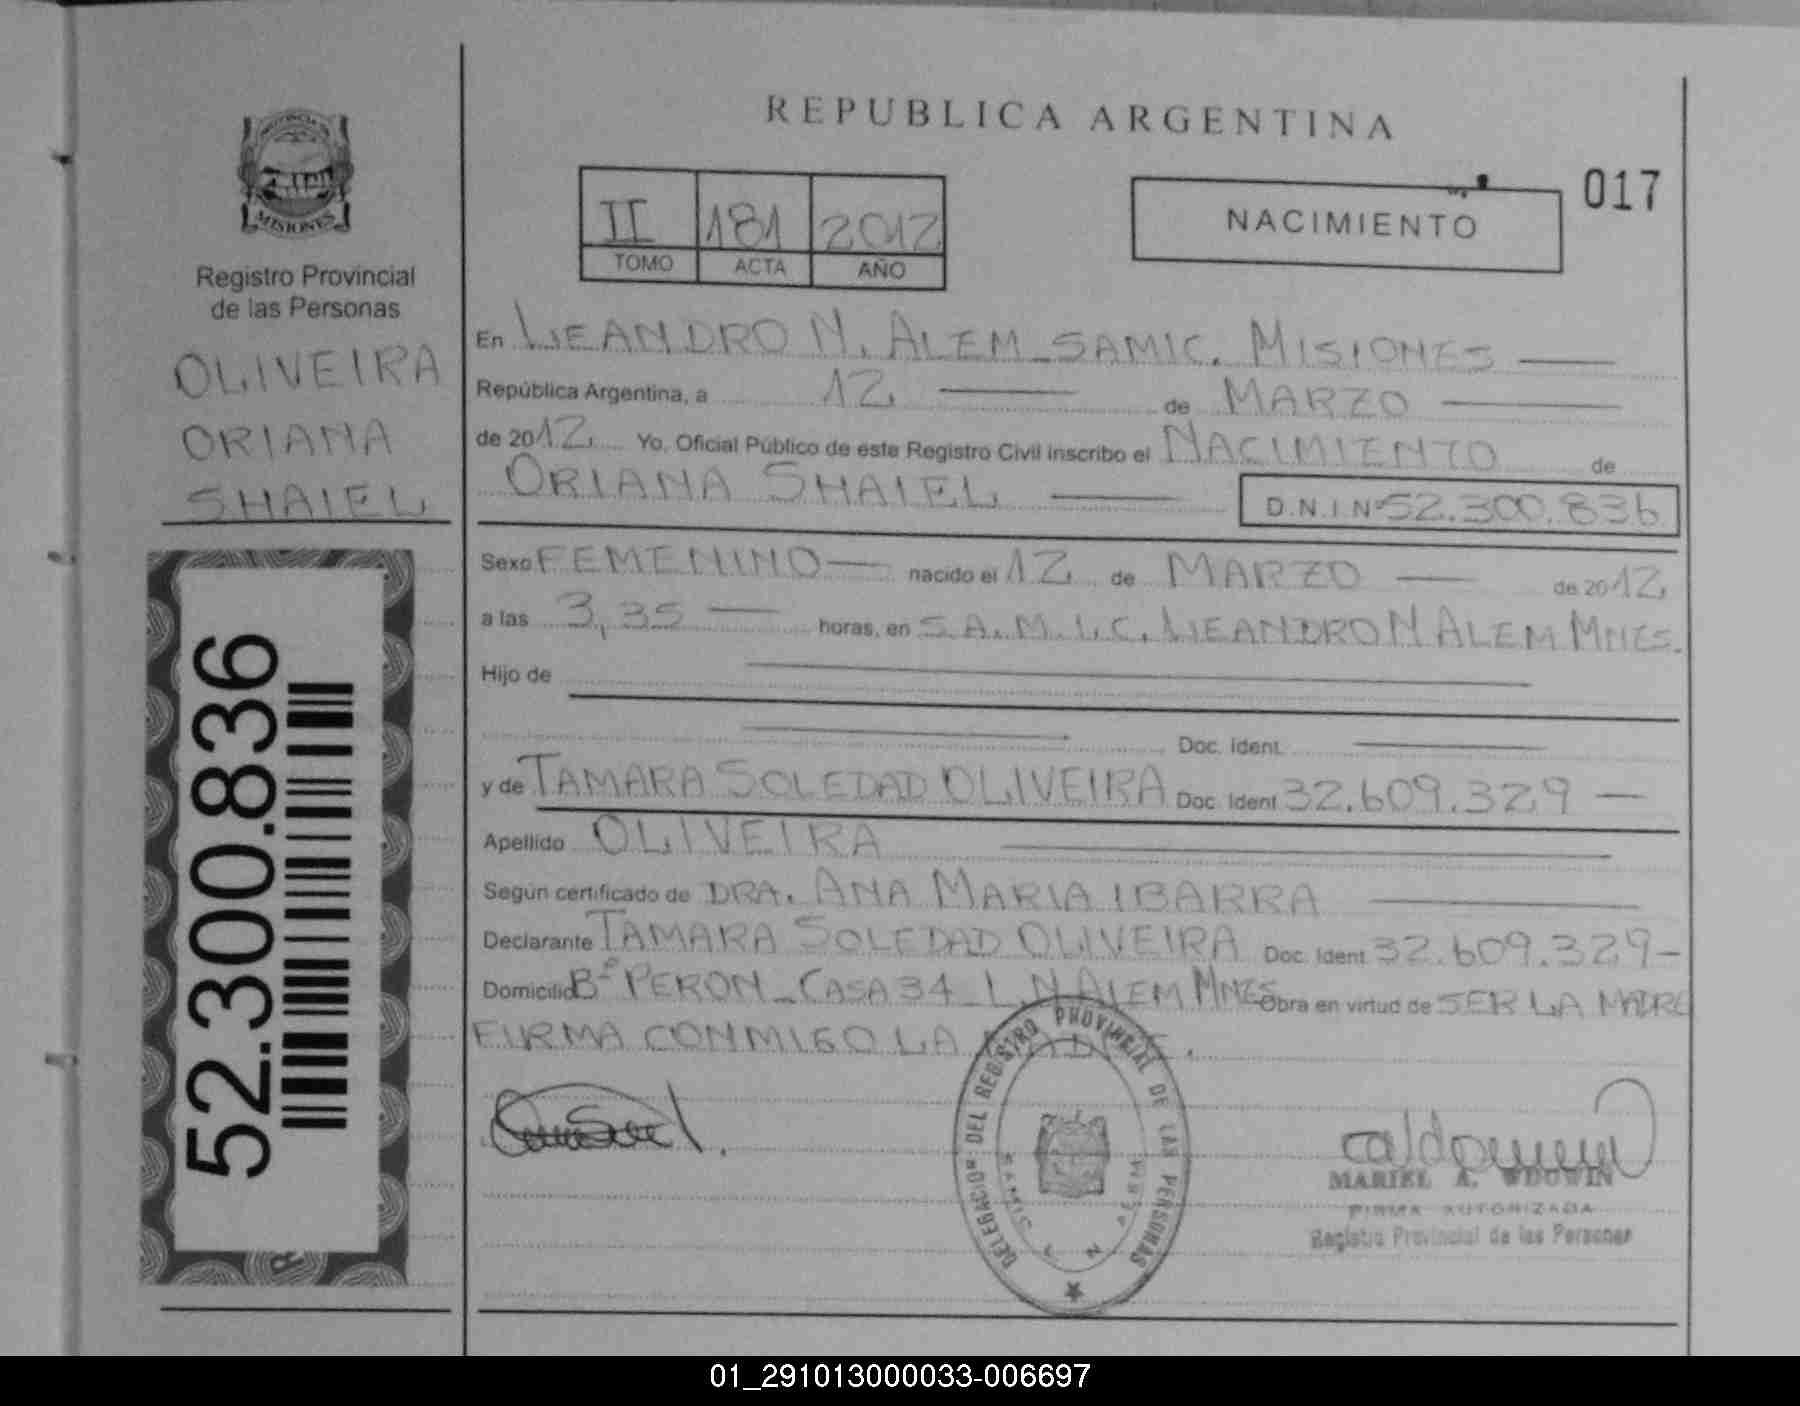 REPUBLICA ARGENTINA
MISIONES
Registro Provincial
de las Personas
OLIVEIRA
ORIANA
SHAIEL
52.300.836
II 181 2012
TOMO ACTA AÑO
NACIMIENTO
017
En LEANDRO N. ALEM - SAMIC. MISIONES
República Argentina, a 12 de MARZO
de 2012 Yo, Oficial Público de este Registro Civil inscribo el NACIMIENTO de
ORIANA SHAIEL D.N.I Nº 52.300.836
Sexo FEMENINO nacido el 12 de MARZO de 2012
a las 3,35 horas, en S.A.M.I.C. LEANDRO N ALEM MNES.
Hijo de
Doc. Ident.
y de TAMARA SOLEDAD OLIVEIRA Doc. Ident 32.609.329
Apellido OLIVEIRA
Según certificado de DRA. ANA MARIA IBARRA
Declarante TAMARA SOLEDAD OLIVEIRA Doc. Ident 32.609.329
Domicilio Bº PERON - CASA 34 - L.N ALEM MNES Obra en virtud de SER LA MADRE
FIRMA CONMIGO LA MADRE.
DELEGACION DEL REGISTRO PROVINCIAL DE LAS PERSONAS
MARIEL A. WDOWIN
FIRMA AUTORIZADA
Registro Provincial de las Personas
01_291013000033-006697